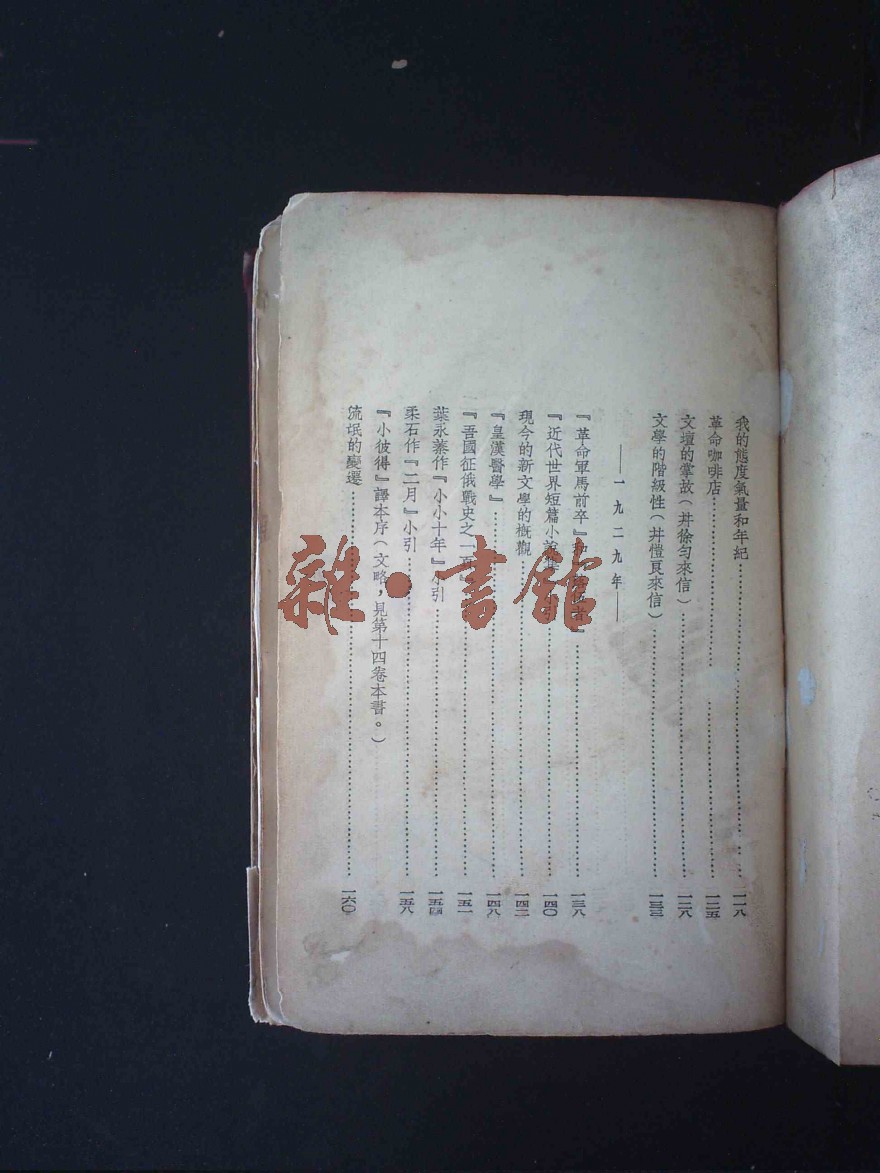 我的態度氣量和年紀……一一八
革命咖啡店……一二五
文壇的掌故(并徐匀來信)……一二八
文學的階級性(并愷良來信)……一三三
——一九二九年——
『革命軍馬前卒』和 者』……一三八
『近代世界短篇小說集 引……一四〇
現今的新文學的概觀……一四二
『皇漢醫學』……一四八
『吾國征俄戰史之一頁……一五一
葉永蓁作『小小十年』小引……一五四
柔石作『二月』小引……一五八
『小彼得』譯本序(文略,見第十四卷本書。)
流氓的變遷……一六〇
雜·書館